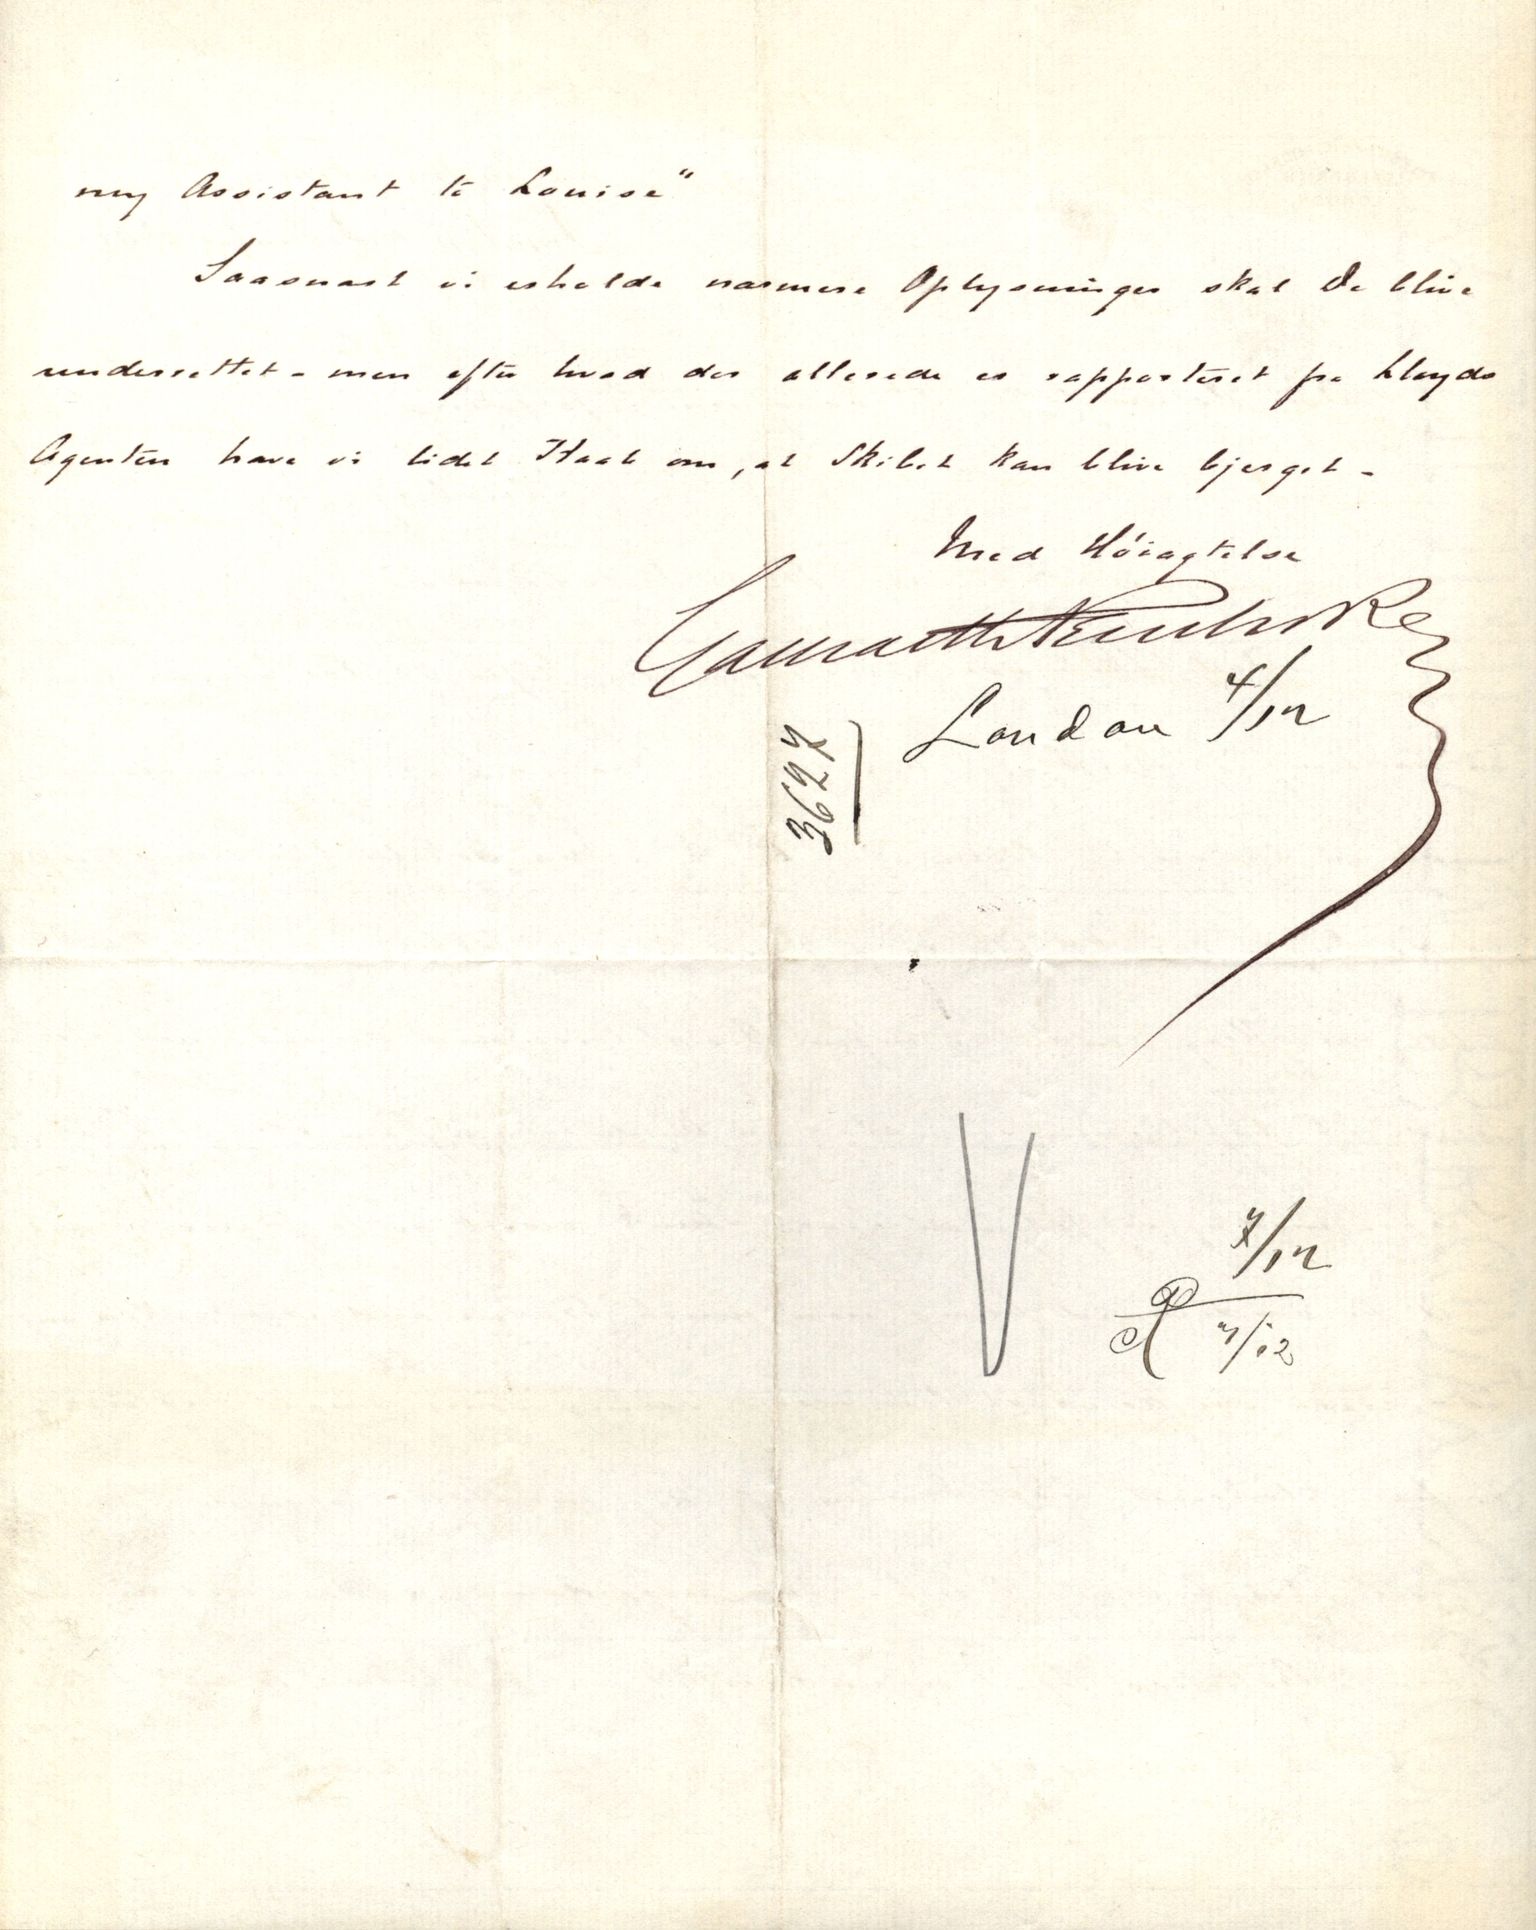 my Assistant to Louise"
Saasnart vi erholde nærmere Oplysninger skal De blive
underrettet - men efter hvad der allerede er rapporteret fra Lloyds
Agenten have vi lidet Haab om, at Skibet kan blive bjerget -
Med Høiagtelse
London 4/12
3627
7/12
7/12